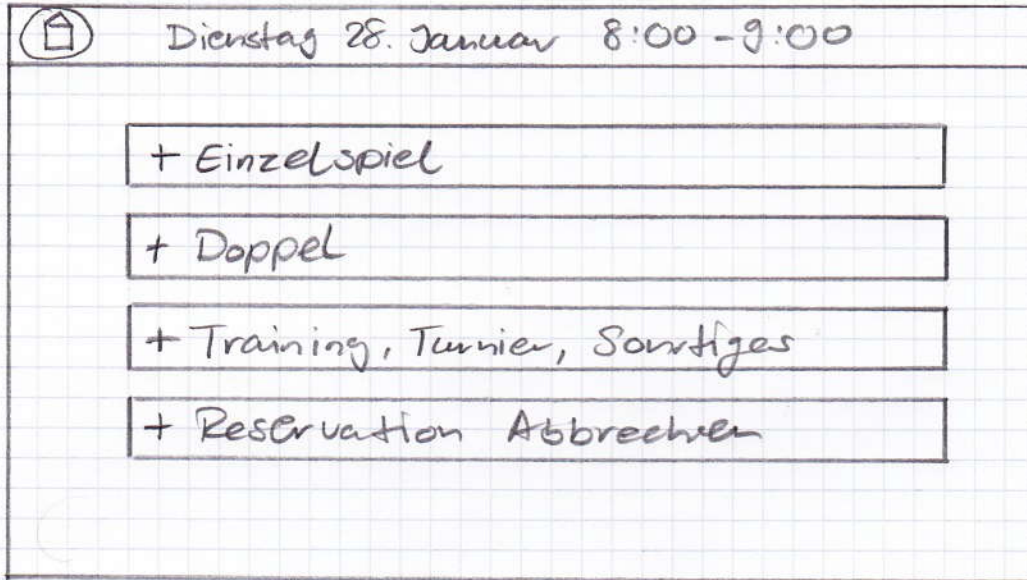 Dienstag 28. Januar 8:00 - 9:00
+ Einzelspiel
+ Doppel
+ Training, Turnier, Sonstiges
+ Reservation Abbrechen